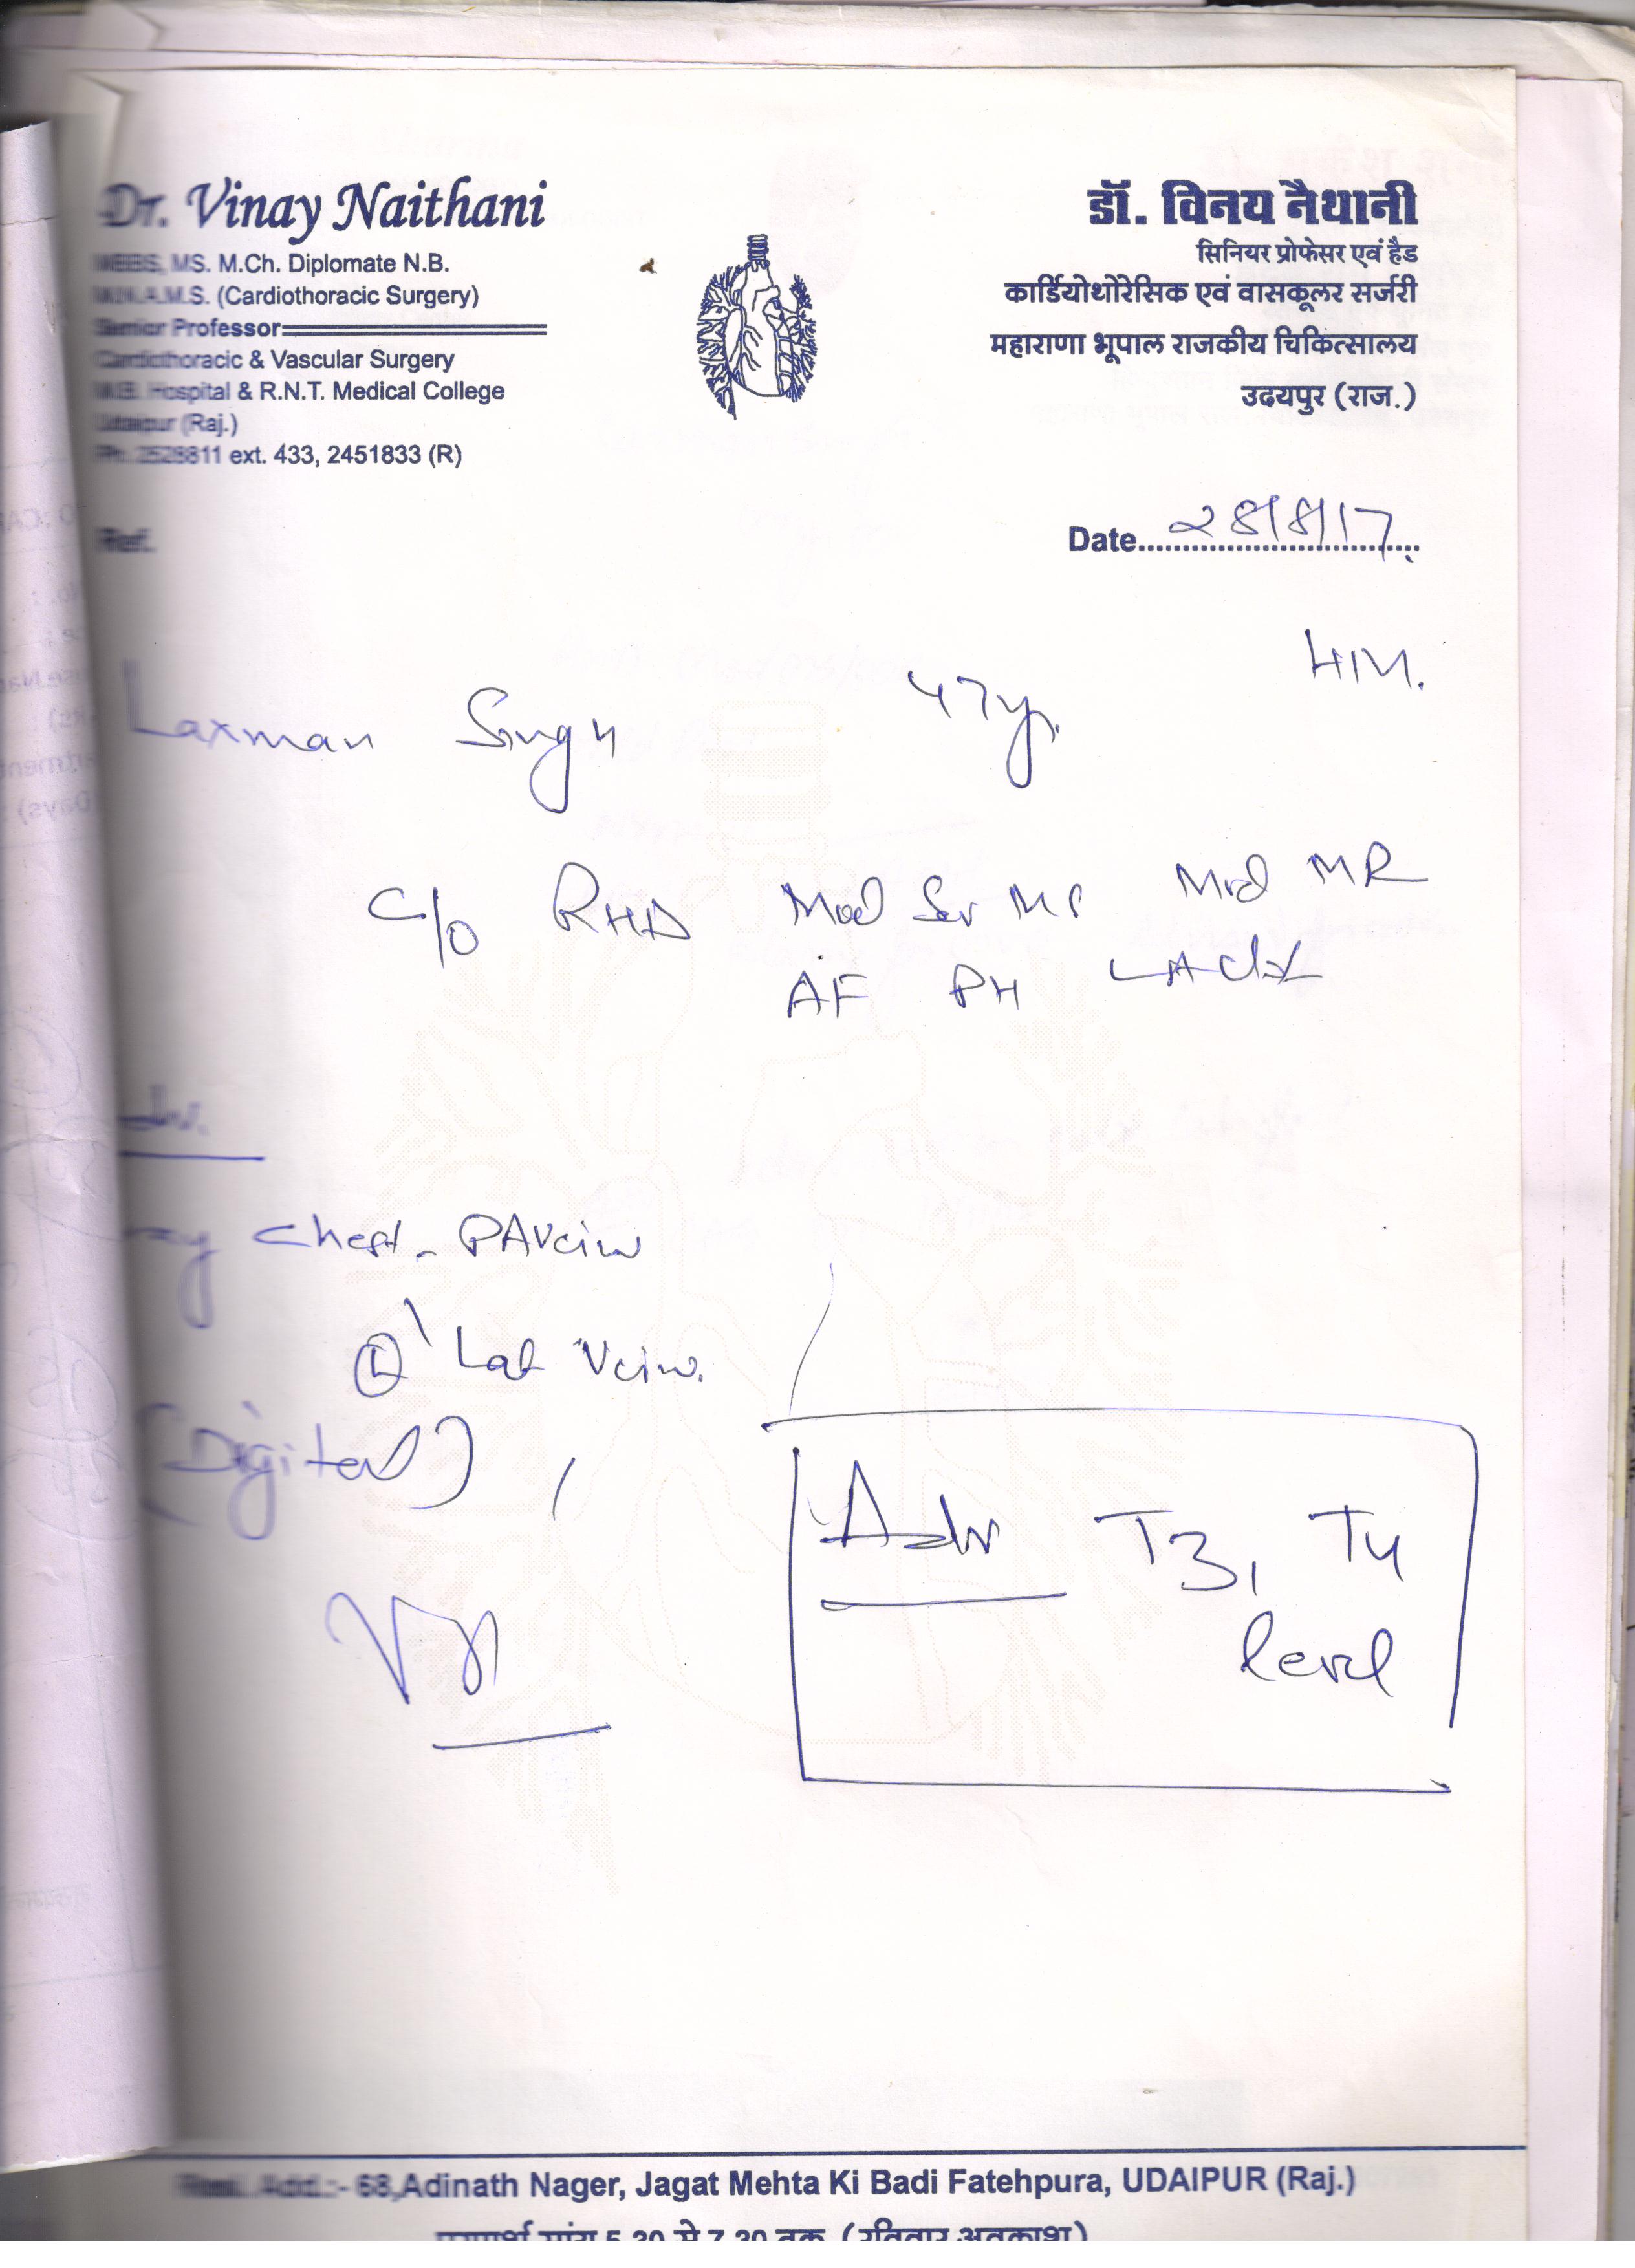 Dr. Vinay Naithani
MBBS, MS. M.Ch. Diplomate N.B.
M.N.A.M.S. (Cardiothoracic Surgery)
Senior Professor
Cardiothoracic & Vascular Surgery
M.B. Hospital & R.N.T. Medical College
Udaipur (Raj.)
Ph. 2528811 ext. 433, 2451833 (R)
डॉ. विनय नैथानी
सिनियर प्रोफेसर एवं हैड
कार्डियोथोरेसिक एवं वासकूलर सर्जरी
महाराणा भूपाल राजकीय चिकित्सालय
उदयपुर (राज.)
Ref.
Date 28/8/17.
Laxman Singh 47yr.
C/o RHD Mod Sev MS Mod MR
AF PH LA Clot
Adv.
Chest - PA Veiw
(L) Lat Veiw.
(Digital)
Adv T3, T4
level
Resi. Add.:- 68,Adinath Nager, Jagat Mehta Ki Badi Fatehpura, UDAIPUR (Raj.)
5.30 से 7.30 तक (रविवार अवकाश)